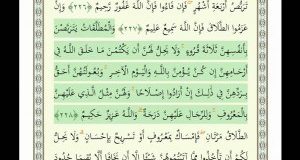 تَرَبُّصُ أَرْبَعَةِ أَشْهُرٍ ۖ فَإِن فَاءُو فَإِنَّ اللَّهَ غَفُورٌ رَّحِيمٌ ﴿٢٢٦﴾ وَإِنْ
عَزَمُوا الطَّلَاقَ فَإِنَّ اللَّهَ سَمِيعٌ عَلِيمٌ ﴿٢٢٧﴾ وَالْمُطَلَّقَاتُ يَتَرَبَّصْنَ
بِأَنفُسِهِنَّ ثَلَاثَةَ قُرُوءٍ ۚ وَلَا يَحِلُّ لَهُنَّ أَن يَكْتُمْنَ مَا خَلَقَ اللَّهُ فِي
أَرْحَامِهِنَّ إِن كُنَّ يُؤْمِنَّ بِاللَّهِ وَالْيَوْمِ الْآخِرِ ۚ وَبُعُولَتُهُنَّ أَحَقُّ
بِرَدِّهِنَّ فِي ذَٰلِكَ إِنْ أَرَادُوا إِصْلَاحًا ۚ وَلَهُنَّ مِثْلُ الَّذِي عَلَيْهِنَّ
بِالْمَعْرُوفِ ۚ وَلِلرِّجَالِ عَلَيْهِنَّ دَرَجَةٌ ۗ وَاللَّهُ عَزِيزٌ حَكِيمٌ ﴿٢٢٨﴾
الطَّلَاقُ مَرَّتَانِ ۖ فَإِمْسَاكٌ بِمَعْرُوفٍ أَوْ تَسْرِيحٌ بِإِحْسَانٍ ۗ وَلَا يَحِلُّ
لَكُمْ أَن تَأْخُذُوا مِمَّا آتَيْتُمُوهُنَّ شَيْئًا إِلَّا أَن يَخَافَا أَلَّا يُقِيمَا حُدُودَ